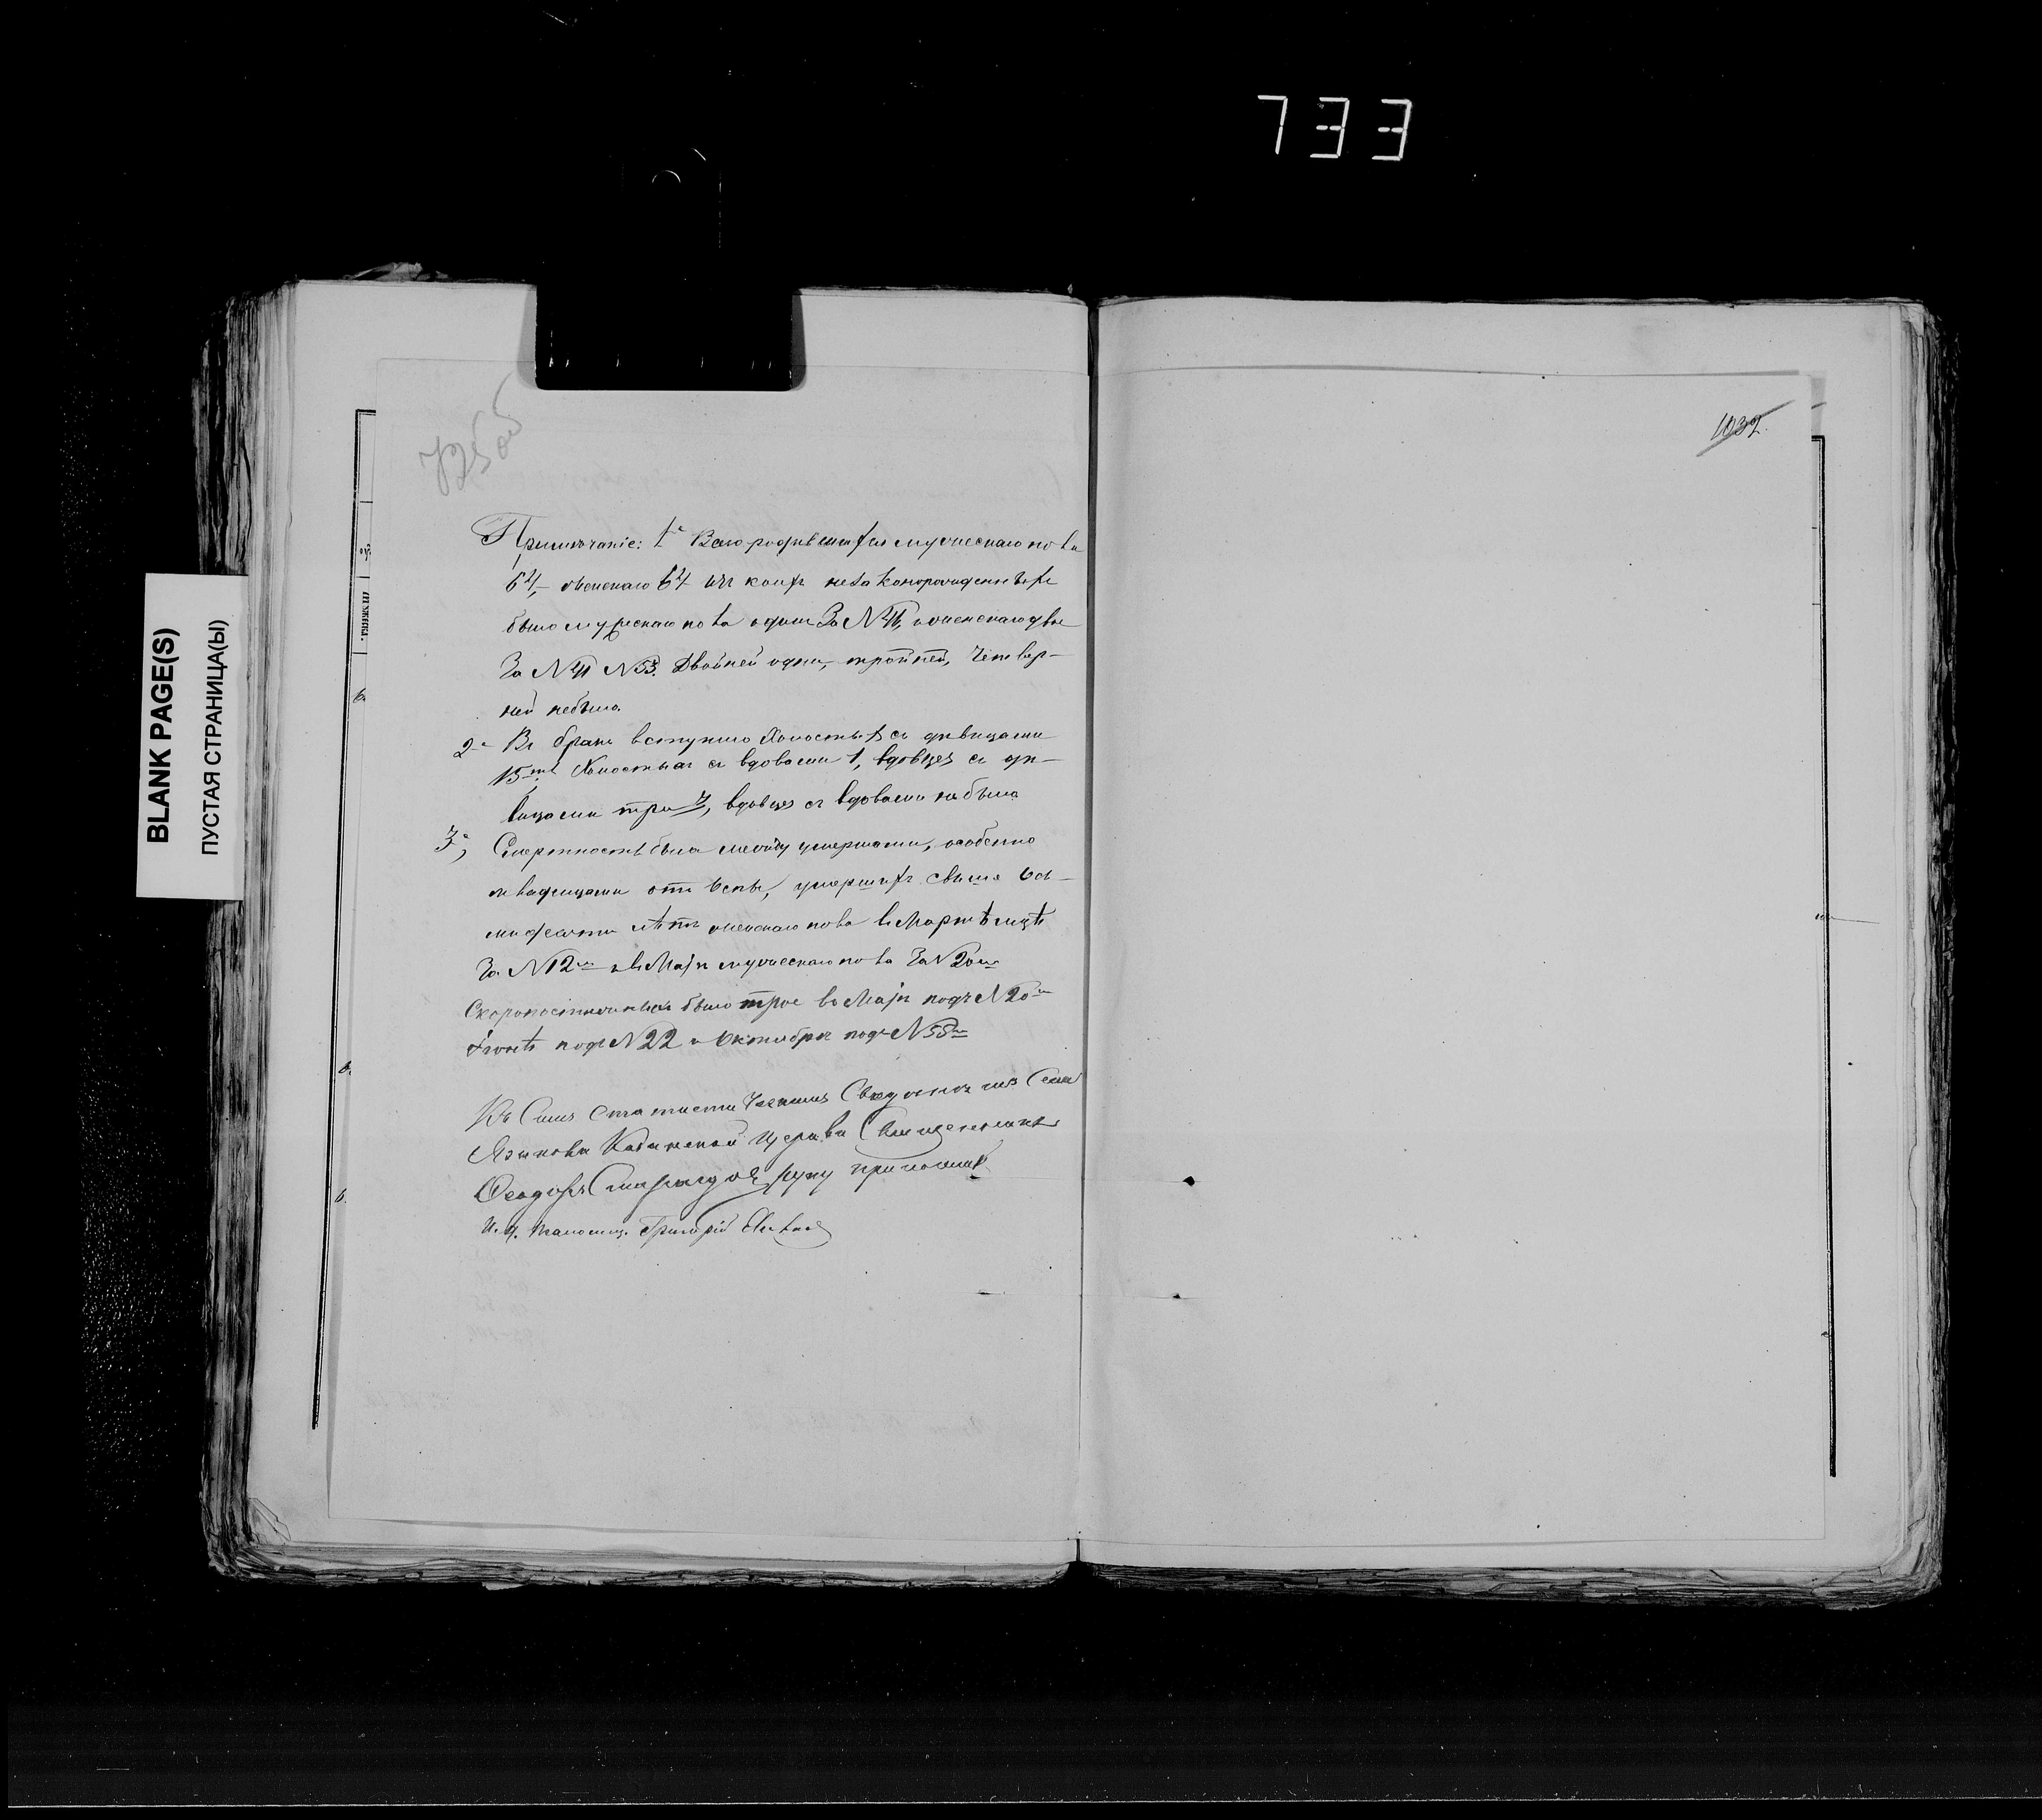 733
BLANK PAGE(S)
ПУСТАЯ СТРАНИЦА(Ы)
1032.
Примѣчаніе: 1е Всего родившихся мужескаго пола
64, женскаго 64 изъ коихъ незаконорожденныхъ
было мужескаго пола одинъ За №, женскаго двѣ
За № 41 № 53. Двойней одни, тройней, четвер-
ней небыло.
2е Въ бракъ вступило Холостых съ дѣвицами
15ть Холостыхъ съ вдовами 1, вдовцев съ дѣ-
вицами три, вдовцев съ вдовами не было
3е, Смертность была между умершими, особенно
младенцами отъ оспы, умершихъ свыше вось-
мидесяти лѣтъ женскаго пола въ Мартѣ мцѣ
За № 12м и въ Маѣ мужескаго пола За № 20м
Скоропостижныхъ было трое въ Маѣ подъ № 20м
Іюнѣ подъ № 22 и Октябрѣ подъ № 58м
Къ Симъ статистическимъ Свѣдѣніямъ Села
Языкова Казанской церкви Священникъ
Ѳеодоръ Смарагдовъ руку приложилъ
И. д. псаломщ. Григорій